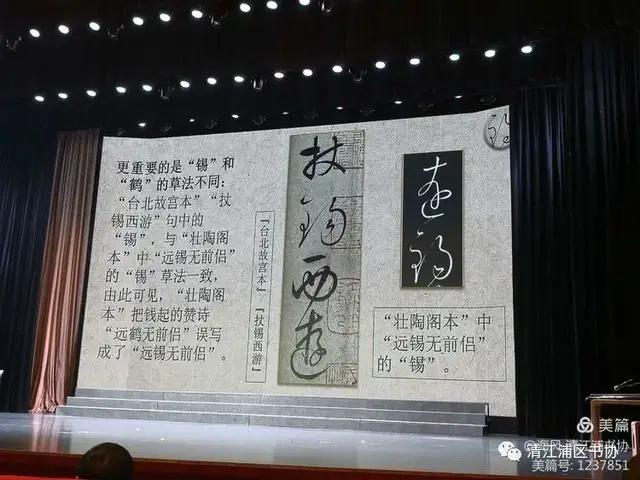 更重要的是“锡”和
“鹤”的草法不同：
“台北故宫本”“扙
锡西游”句中的
“锡”，与“壮陶阁
本”中“远锡无前侣”
的“锡”草法一致，
由此可见，“壮陶阁
本”把钱起的赞诗
“远鹤无前侣”误写
成了“远锡无前侣”。
『台北故宫本』『扙锡西游』
扙锡西游
远锡
“壮陶阁本”中
“远锡无前侣”
的“锡”。
美篇
清江浦区书协
美篇号：1237851